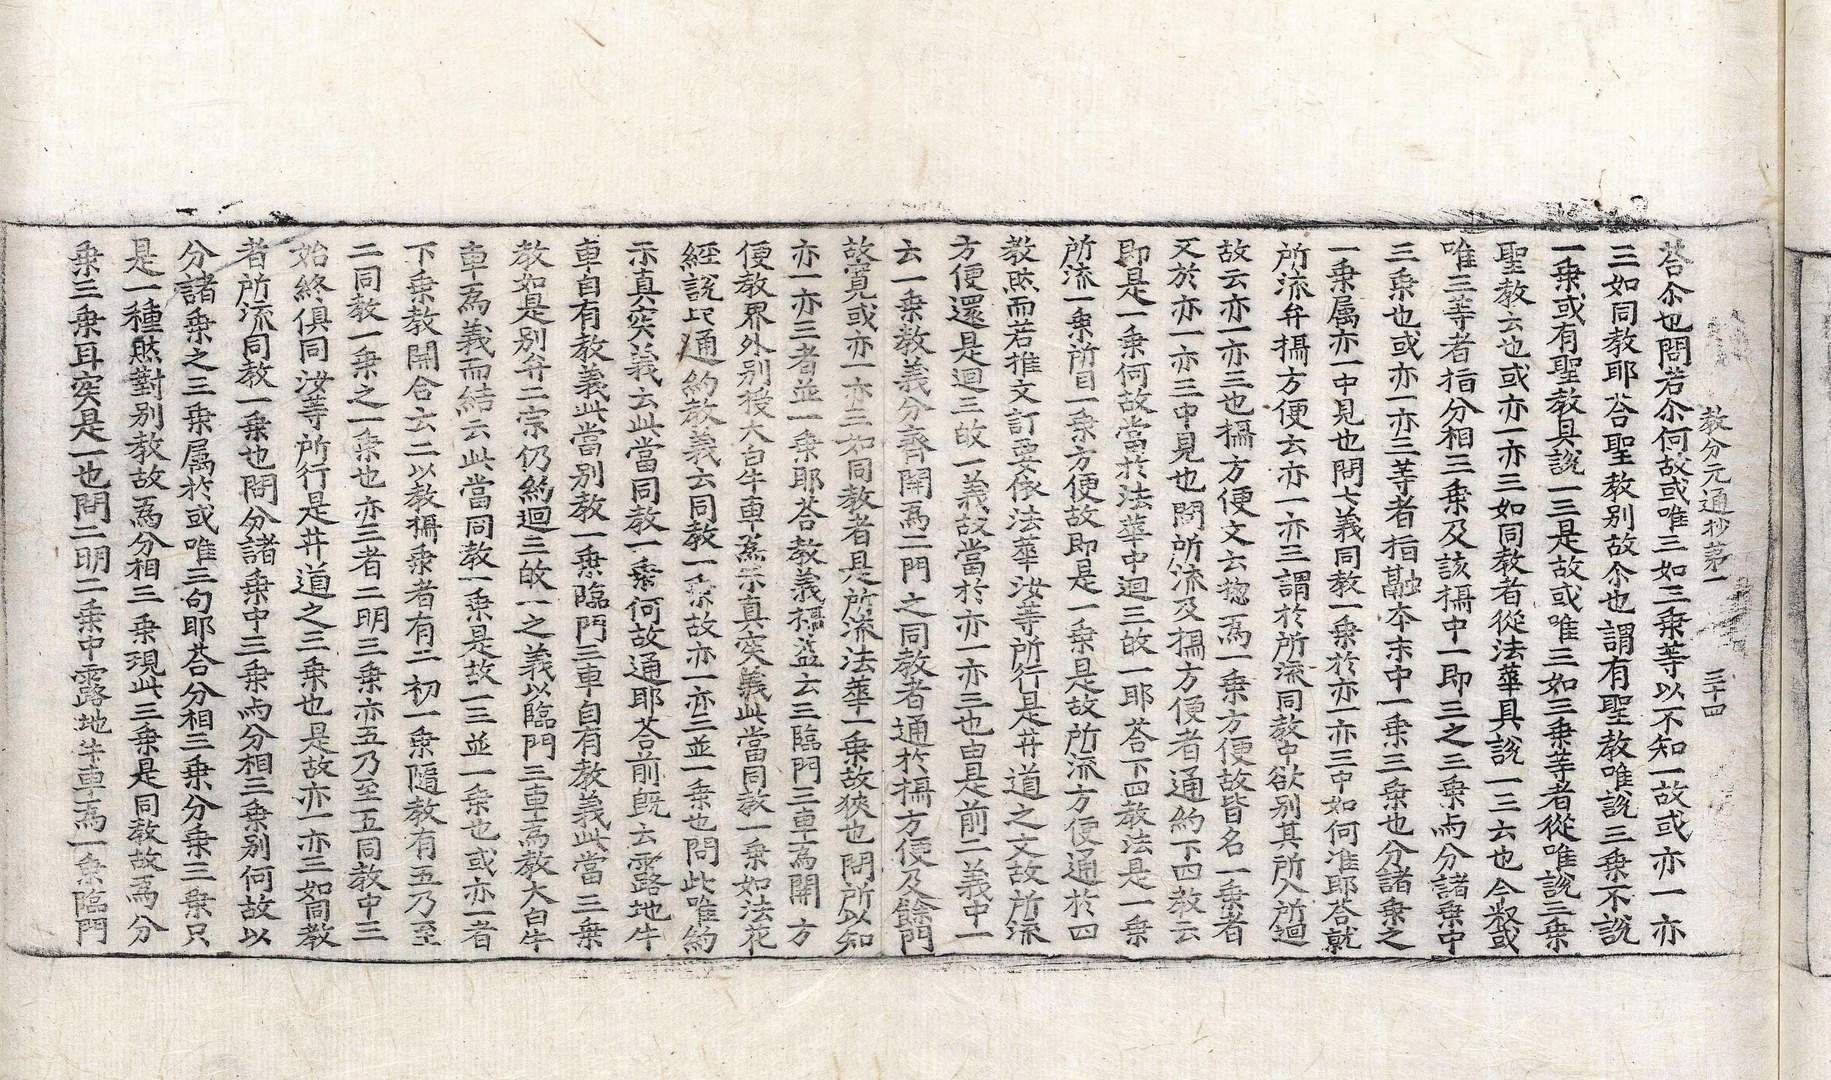 教分元通抄第一　三十四
荅尒也問若尒何故或唯三如三乗等以不知一故或亦一亦
三如同教耶荅聖教别故尒也謂有聖教唯說三乗不說
一乗或有聖教具說一三是故或唯三如三乗等者從唯說三乗
聖教云也或亦一亦三如同教者從法華具說一三云也今䂓或
唯三等者指分相三乗及該攝中一即三之三乗与分諸乗中
三乗也或亦一亦三等者指融本末中一乗三乗也分諸乗之
一乗属亦一中見也問七義同教一乗於亦一亦三中如何准耶荅就
所流弁攝方便云亦一亦三謂於所流同教中欲别其所入所迴
故云亦一亦三也攝方便文云揔爲一乗方便故皆名一乗者
又於亦一亦三中見也問所流及攝方便者通約下四教云
即是一乗何故當於法華中迴三故一耶荅下四教法是一乗
所流一乗所目一乗方便故即是一乗是故所流方便通於四
教㷼而若推文訂要依法華汝等所行是𦬇道之文故所流
方便還是迴三故一義故當於亦一亦三也由是前二義中一
云一乗教義分齊開爲二門之同教者通於攝方便及餘門
故寛或亦一亦三如同教者是所流法華一乗故狹也問所以知
亦一亦三者並一乗耶荅教義攝益云三臨門三車爲開方
便教界外别授大白牛車爲示真实義此當同教一乗如法花
經說占通約教義云同教一乗故亦一亦三並一乗也問此唯約
示真实義云此當同教一乗何故通耶荅前旣云露地牛
車自有教義此當别教一乗臨門三車自有教義此當三乗
教如是别弁二宗仍約迴三故一之義以臨門三車爲教大白牛
車爲義而結云此當同教一乗是故一三並一乗也或亦一者
下乗教開合云二以教攝乗者有二初一乗隨教有五乃至
二同教一乗之一乗也亦三者二明三乗亦五乃至五同教中三
始終俱同汝等所行是𦬇道之三乗也是故亦一亦三如同教
者所流同教一乗也問分諸乗中三乗与分相三乗别何故以
分諸乗之三乗属於或唯三句耶荅分相三乗分乗三乗只
是一種㷼對别教故爲分相三乗現此三乗是同教故爲分
乗三乗耳实是一也問二明二乗中露地牛車爲一乗臨門